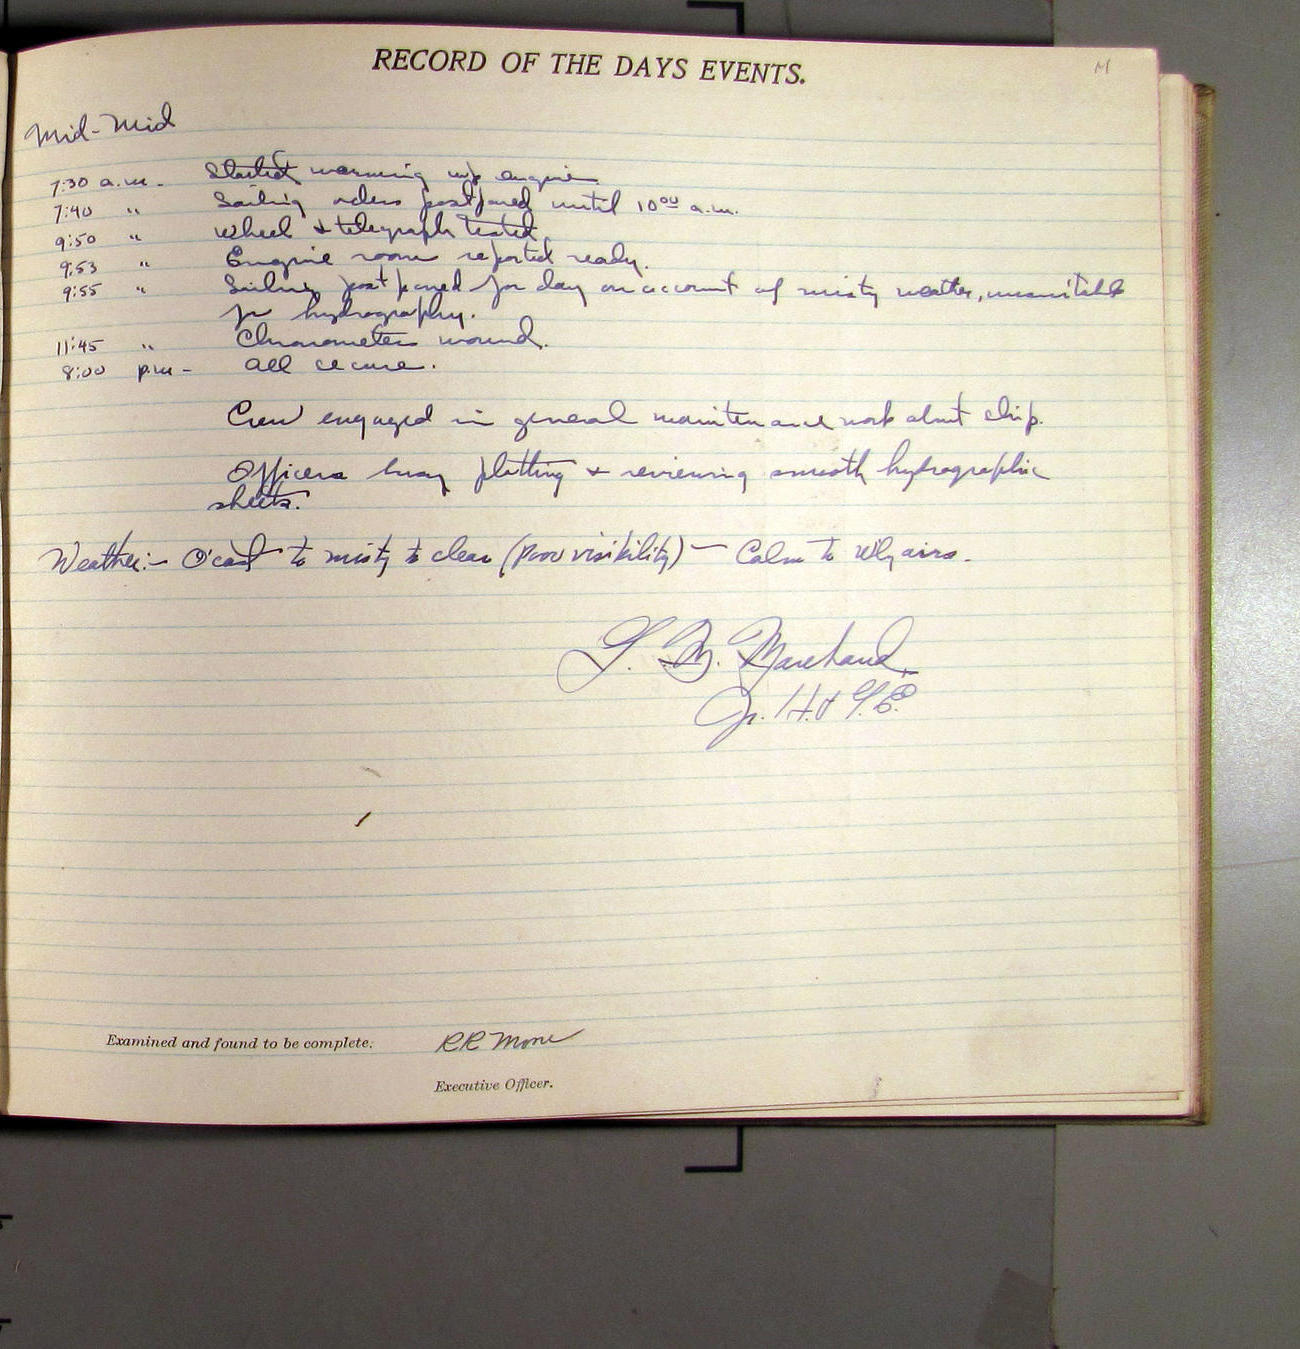 RECORD OF THE DAYS EVENTS.
M
Mid-Mid
7:30 a.m. - Started warming up engine.
7:40 " Sailing orders postponed until 10⁰⁰ a.m.
9:50 " Wheel & telegraph tested.
9:53 " Engine room reported ready.
9:55 " Sailing postponed for day on account of misty weather, unsuitable
for hydrography.
11:45 " Chronometers wound.
8:00 p.m - All secure.
Crew engaged in general maintenance work about ship.
Officers busy plotting & reviewing smooth hydrographic
sheets.
Weather:- O'cast to misty to clear (poor visibility) - Calm to W'ly airs.
Marchand
Jr. H. & G. E.
Examined and found to be complete: RR Moore
Executive Officer.